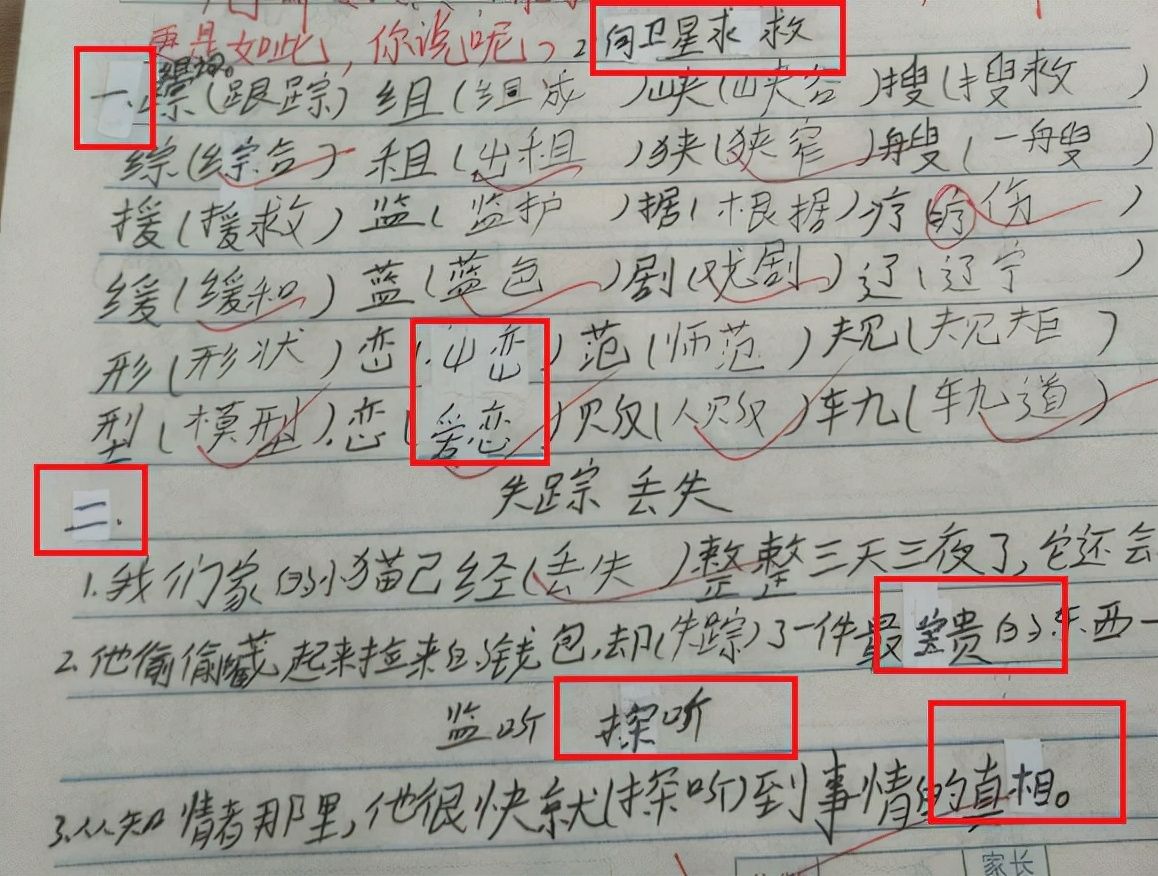 更是如此,你说呢? 2 向卫星求救
一.组词。
踪(跟踪) 组(组成) 峡(山峡谷) 搜(搜救)
综(综合) 租(出租) 狭(狭窄) 艘(一艘)
援(援救) 监(监护) 据(根据) 疗(疗伤)
缓(缓和) 蓝(蓝色) 剧(戏剧) 辽(辽宁)
形(形状) 峦(山峦) 范(师范) 规(规矩)
型(模型) 恋(爱恋) 贩(人贩) 轨(轨道)
二.
失踪 丢失
1.我们家的小猫已经(丢失)整整三天三夜了,它还会
2.他偷偷藏起来捡来的钱包,却(失踪)了一件最宝贵的东西一
监听 探听
3.从知情者那里,他很快就(探听)到事情的真相。
家长